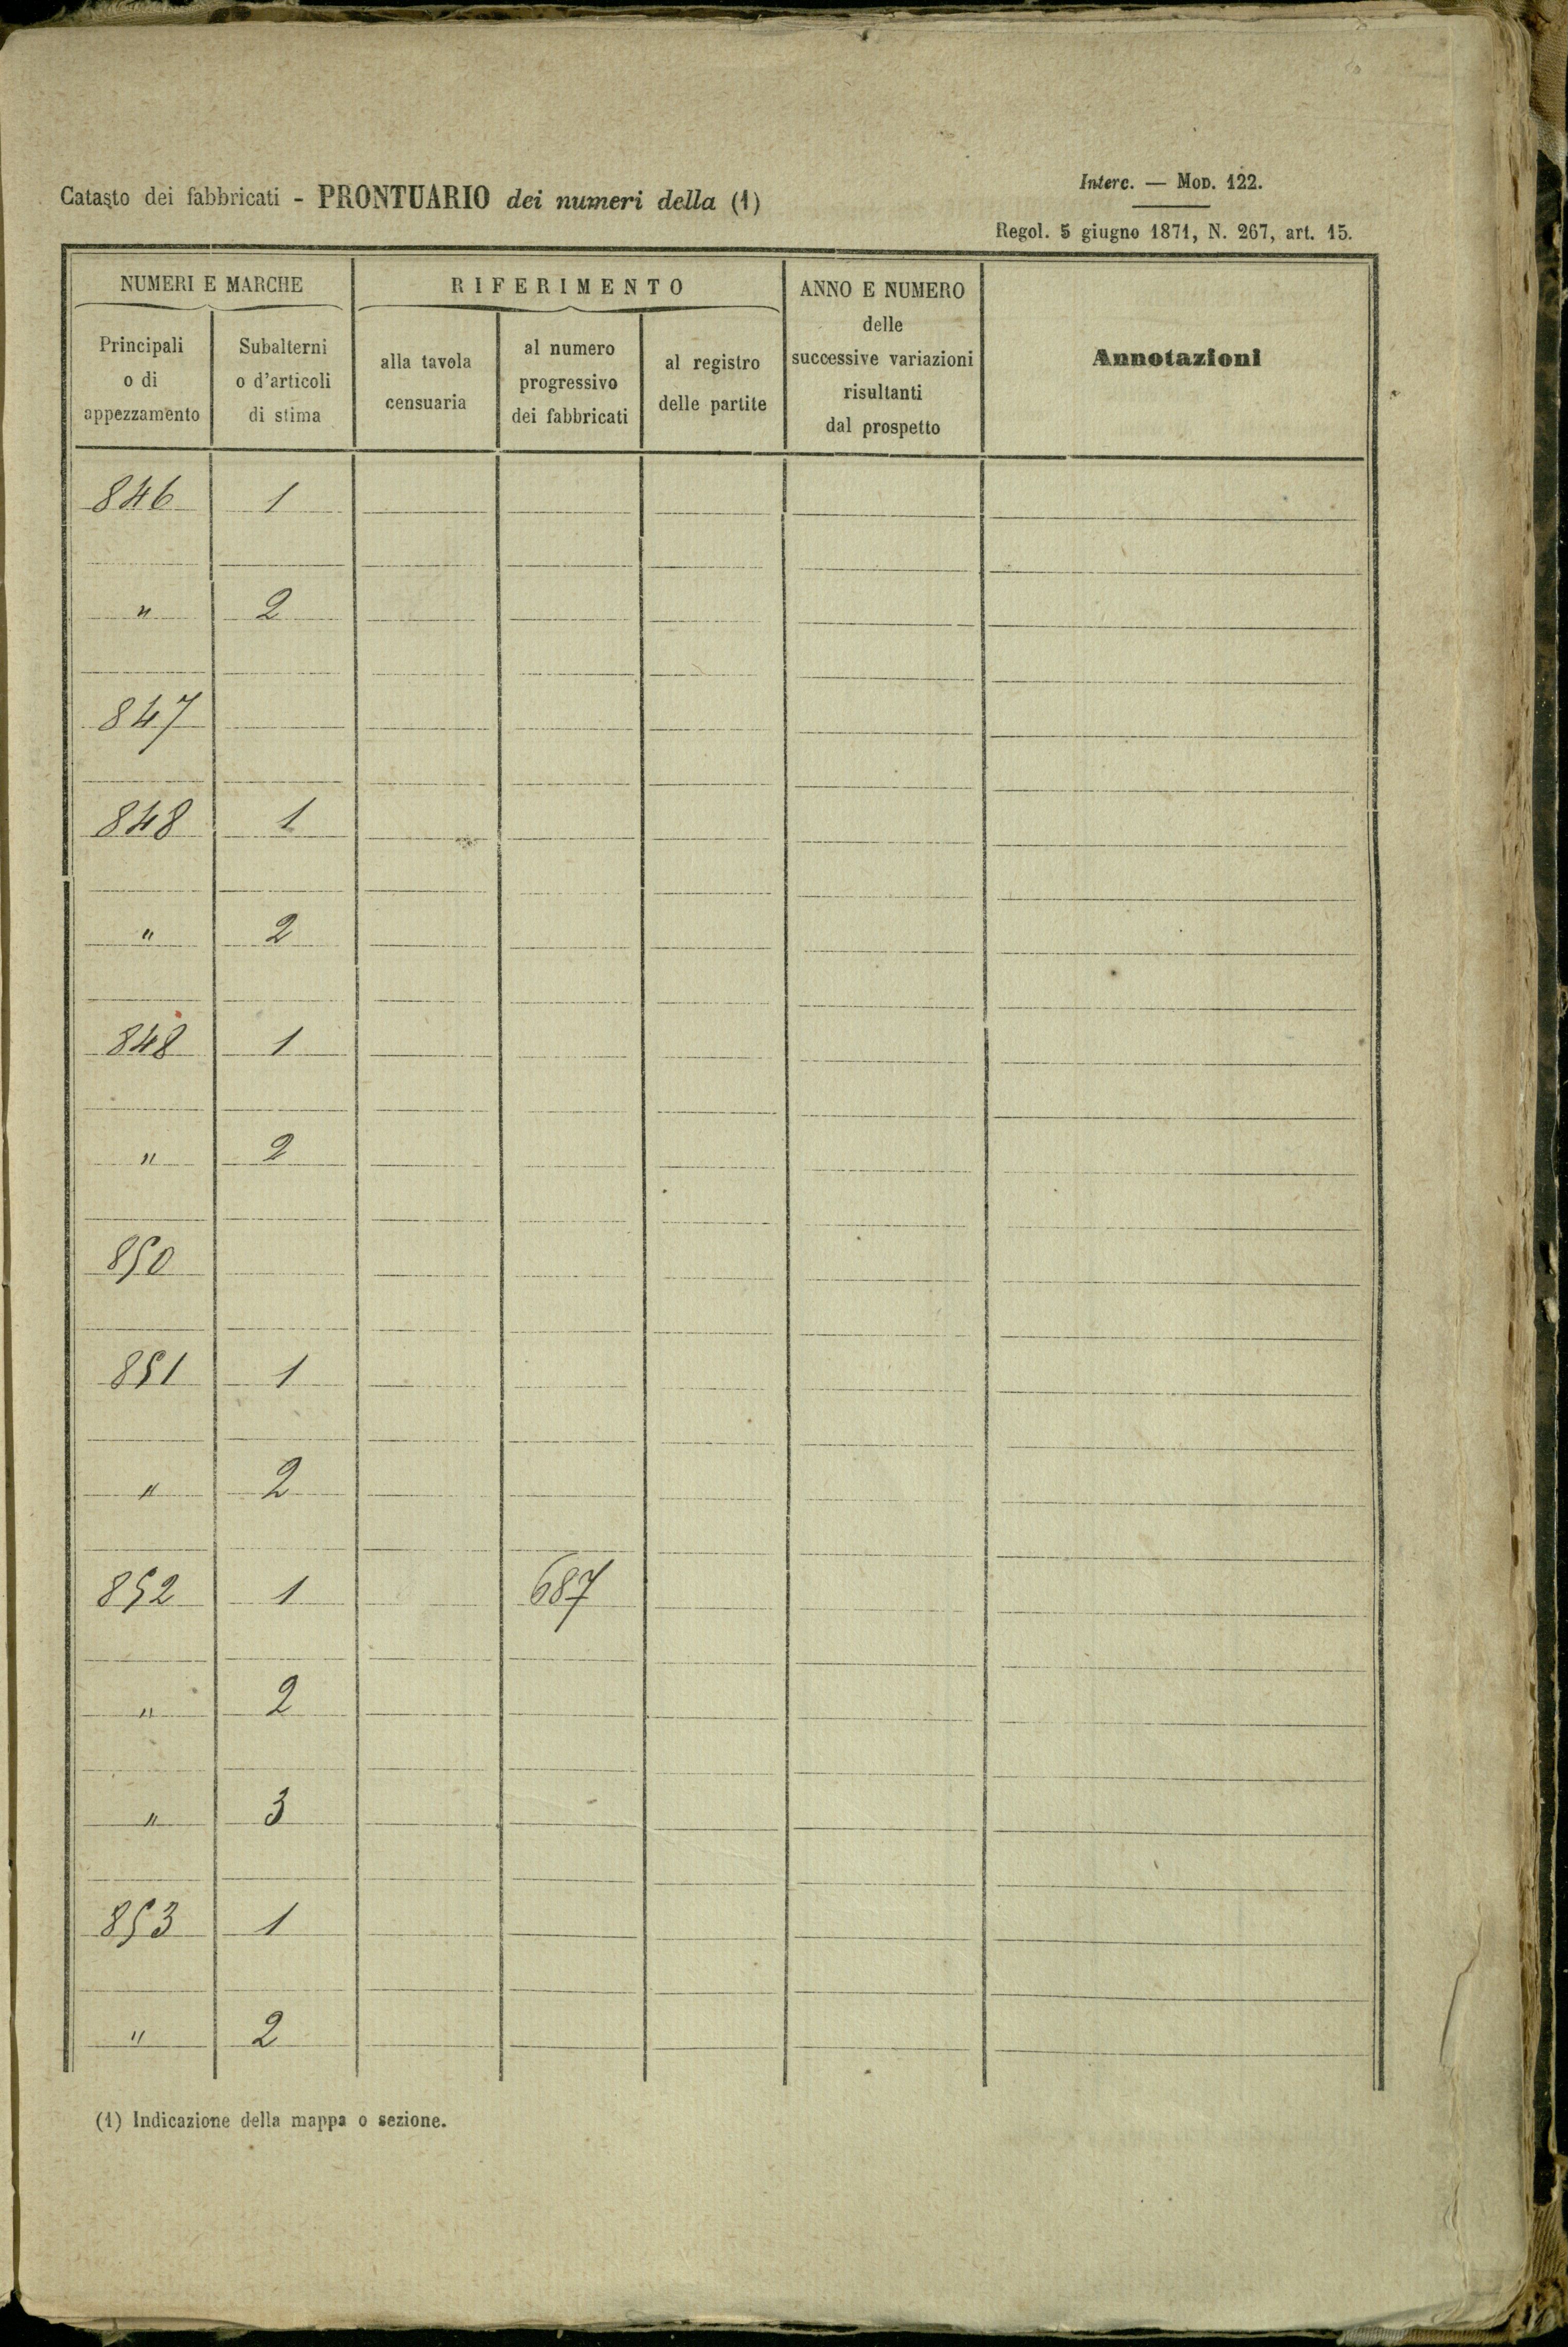 Catasto dei fabbricati - PRONTUARIO dei numeri della (1)
Interc. — MOD. 122.
Regol. 5 giugno 1871, N. 267, art. 15.
NUMERI E MARCHE
RIFERIMENTO
ANNO E NUMERO
delle
successive variazioni
risultanti
dal prospetto
Annotazioni
Principali
o di
appezzamento
Subalterni
o d'articoli
di stima
alla tavola
censuaria
al numero
progressivo
dei fabbricati
al registro
delle partite
846 1
" 2
847
848 1
" 2
848 1
" 2
850
851 1
" 2
852 1 687
" 2
" 3
853 1
" 2
(1) Indicazione della mappa o sezione.